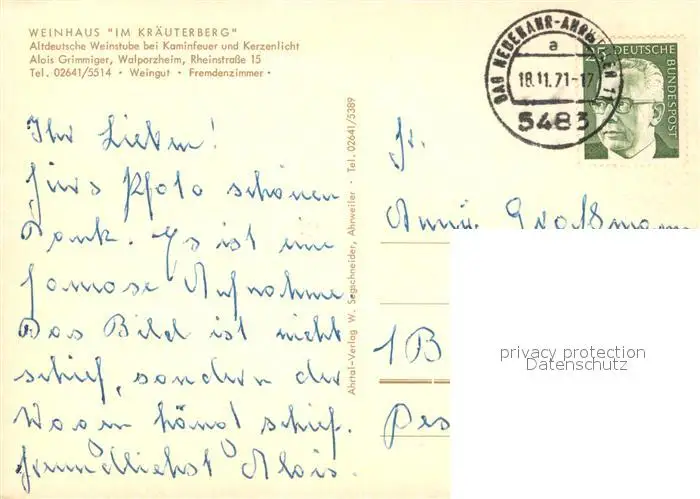 WEINHAUS "IM KRÄUTERBERG"
Altdeutsche Weinstube bei Kaminfeuer und Kerzenlicht
Alois Grimmiger, Walporzheim, Rheinstraße 15
Tel. 02641/5514 • Weingut • Fremdenzimmer •
Ihr Lieben!
Fürs Photo schönen
Dank. Es ist eine
famose Aufnahme
Das Bild ist nicht
schief, sondern der
hängt schief.
freundlichst Alois.
Ahrtal-Verlag W. Segschneider, Ahrweiler • Tel. 02641/5389
BAD NEUENAHR-AHRWEILER 1
a
18.11.71-17
5483
DEUTSCHE
BUNDESPOST
Fr.
Großmann
1 B
privacy protection
Datenschutz